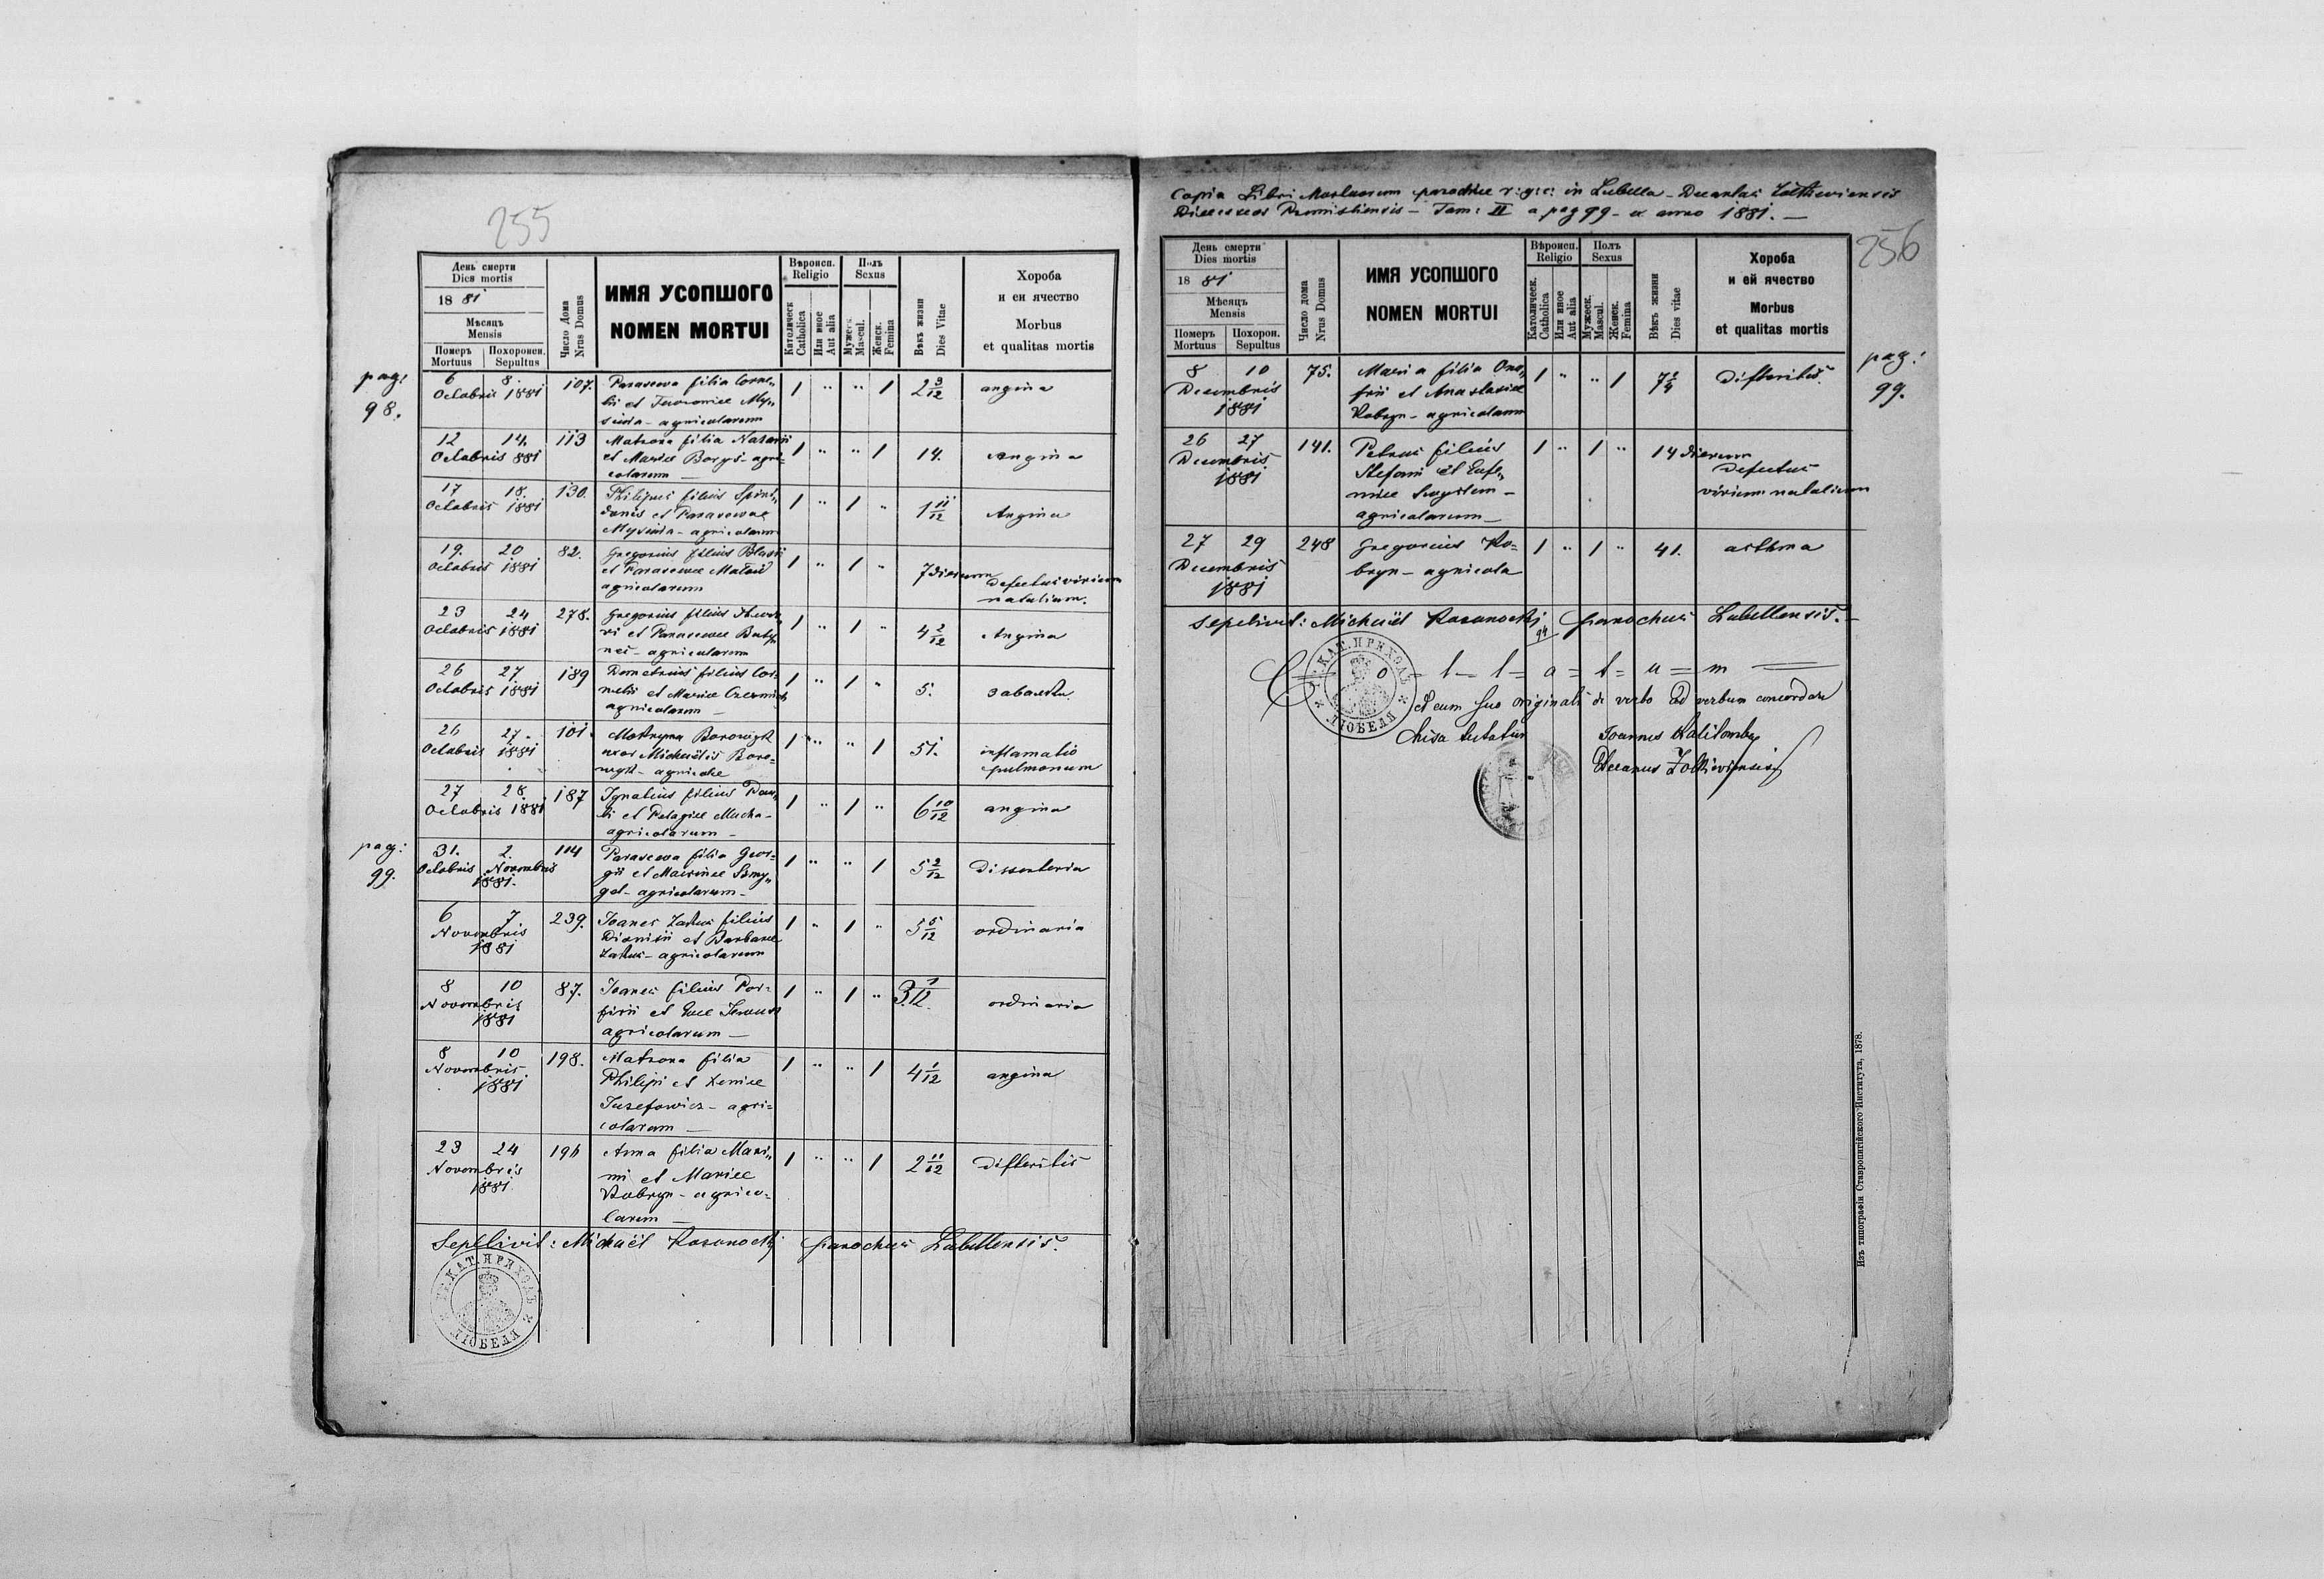 255
День смерти
Dies mortis
18 81
Мѣсяцъ
Mensis
Померъ
Mortuus
Похоронен.
Sepultus
Число Дома
Nrus Domus
ИМЯ УСОПШОГО
NOMEN MORTUI
Вѣроисп.
Religio
Католическ
Catholica
Или иное
Aut alia
Полъ
Sexus
Мужеск.
Mascul.
Женск.
Femina
Вѣкъ жизни
Dies Vitae
Хороба
и еи ячество
Morbus
et qualitas mortis
pag:
98.
6 8. 107. Parascewa filia Corne„ 1 " " 1 2 3/12 angina
Octobris 1881 lii et My„
agricolarum
12 14. 113 Matrona filia Nazarii 1 " " 1 14. angina
Octobris 881 et Mariae Borys - agri-
colarum
17 18. 130. Philipus filius Spiri„ 1 " 1 " 1 11/12 Angina
Octobris 1881 donis et Parascewae
agricolarum
19. 20 82. Gregorius filius Blasii 1 " 1 " 7 dierum defectus virium
Octobris 1881 et Parascewae natalium.
agricolarum
23 24 278. Gregorius filius 1 " 1 " 4 2/12 Angina
Octobris 1881 et Parascewae
agricolarum
26 27 189 Demetrius filius Cor- 1 " 1 " 5.
Octobris 1881 nelii et Mariae
agricolarum
26 27. 101. Motryna 1 " " 1 51. inflamatio
Octobris 1881 uxor Michaëlis pulmonum
agricolae
27 28. 187 Ignatius filius 1 " 1 " 6 10/12 angina
Octobris 1881 et Pelagiae Mucha -
agricolarum -
pag:
99.
31. 2. 114 Parascewa filia Geor- 1 " " 1 5 2/12 Dissenteria
Octobris Novembris gii et
1881. agricolarum -
6 7 239. Joanes filius 1 " 1 " 5 5/12 ordinaria
Novembris Dionisii et Barbarae
1881 agricolarum
8 10 87. Joanes filius Por- 1 " 1 " 3. 1/12 ordinaria
Novembris firii et Evae
1881 agricolarum —
8 10 198. Matrona filia 1 " " 1 4 1/12 angina
Novembris Philipi et Xeniae
1881 Juzefowicz - agri-
colarum —
23 24 Anna filia Maxi„ 1 " " 1 2 11/12 difteritis
Novembris mi et Mariae
1881 Kobryn - agrico-
larum —
Sepelivit: Michaël parochus Lubellensis.
ГР. КАТ. ПРИХОДЪ
ЛЮБЕЛЯ
Copia Libri Mortuorum parochiae r: g: c: in Lubella - Decanatus Zolkieviensis
Dioeceseos Premisliensis - Tom: II a pag 99 - ex anno 1881. —
256
День смерти
Dies mortis
18 81
Мѣсяцъ
Mensis
Померъ
Mortuus
Похорон.
Sepultus
Число дома
Nrus Domus
ИМЯ УСОПШОГО
NOMEN MORTUI
Вѣроисп.
Religio
Католическ.
Catholica
Или иное
Aut alia
Полъ
Sexus
Мужеск.
Mascul.
Женск.
Femina
Вѣкъ жизни
Dies vitae
Хороба
и ей ячество
Morbus
et qualitas mortis
pag:
99.
8 10 75. Maria filia Ono„ 1 " " 1 difteritis.
Decembris frii et Anastasiae
1881 Kobryn - agricolarum
26 27 141. Petrus filius 1 " 1 " 14 dierum
Decembris Stefani et Eufe„ defectus
1881 miae virium natalium
agricolarum —
27 29 248 Gregorius Ko= 1 " 1 " 41. asthma
Decembris bryn - agricola
1881
Sepelivit: Michaël parochus Lubellensis. —
ГР. КАТ. ПРИХОДЪ
ЛЮБЕЛЯ
C = o - l - l = a = t = u = m
et cum suo originali de verbo ad verbum concordare
testatur Joannes
Decanus Zolkieviensis
Изъ типографіи Ставропигійского Института, 1878.